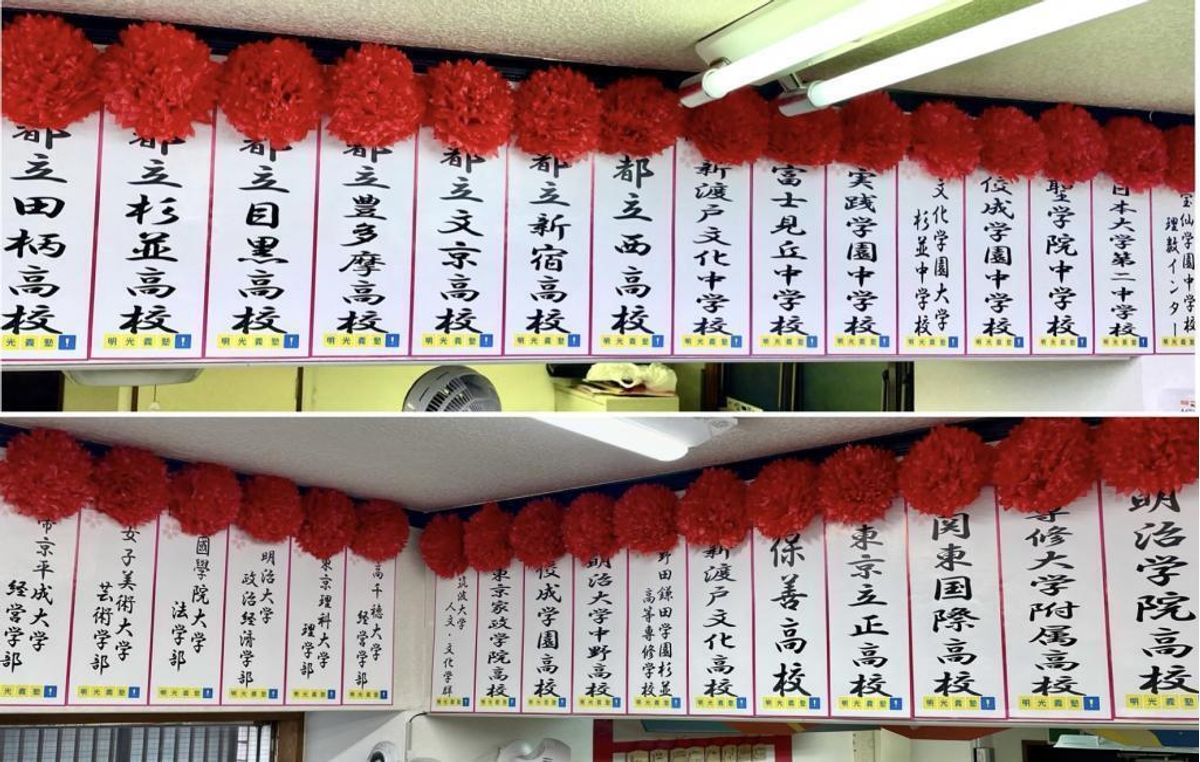 都立田柄高校
明光義塾
都立杉並高校
明光義塾
都立目黒高校
明光義塾
都立豊多摩高校
明光義塾
都立文京高校
明光義塾
都立新宿高校
明光義塾
都立西高校
明光義塾
新渡戸文化中学校
明光義塾
富士見丘中学校
明光義塾
実践学園中学校
明光義塾
文化学園大学
杉並中学校
明光義塾
佼成学園中学校
明光義塾
聖学院中学校
明光義塾
日本大学第二中学校
明光義塾
宝仙学園中学校
理数インター
明光義塾
帝京平成大学
経営学部
明光義塾
女子美術大学
芸術学部
明光義塾
國學院大学
法学部
明光義塾
明治大学
政治経済学部
明光義塾
東京理科大学
理学部
明光義塾
高千穂大学
経営学部
明光義塾
筑波大学
人文・文化学群
明光義塾
東京家政学院高校
明光義塾
佼成学園高校
明光義塾
明治大学中野高校
明光義塾
野田鎌田学園杉並
高等専修学校
明光義塾
新渡戸文化高校
明光義塾
保善高校
明光義塾
東京立正高校
明光義塾
関東国際高校
明光義塾
専修大学附属高校
明光義塾
明治学院高校
明光義塾